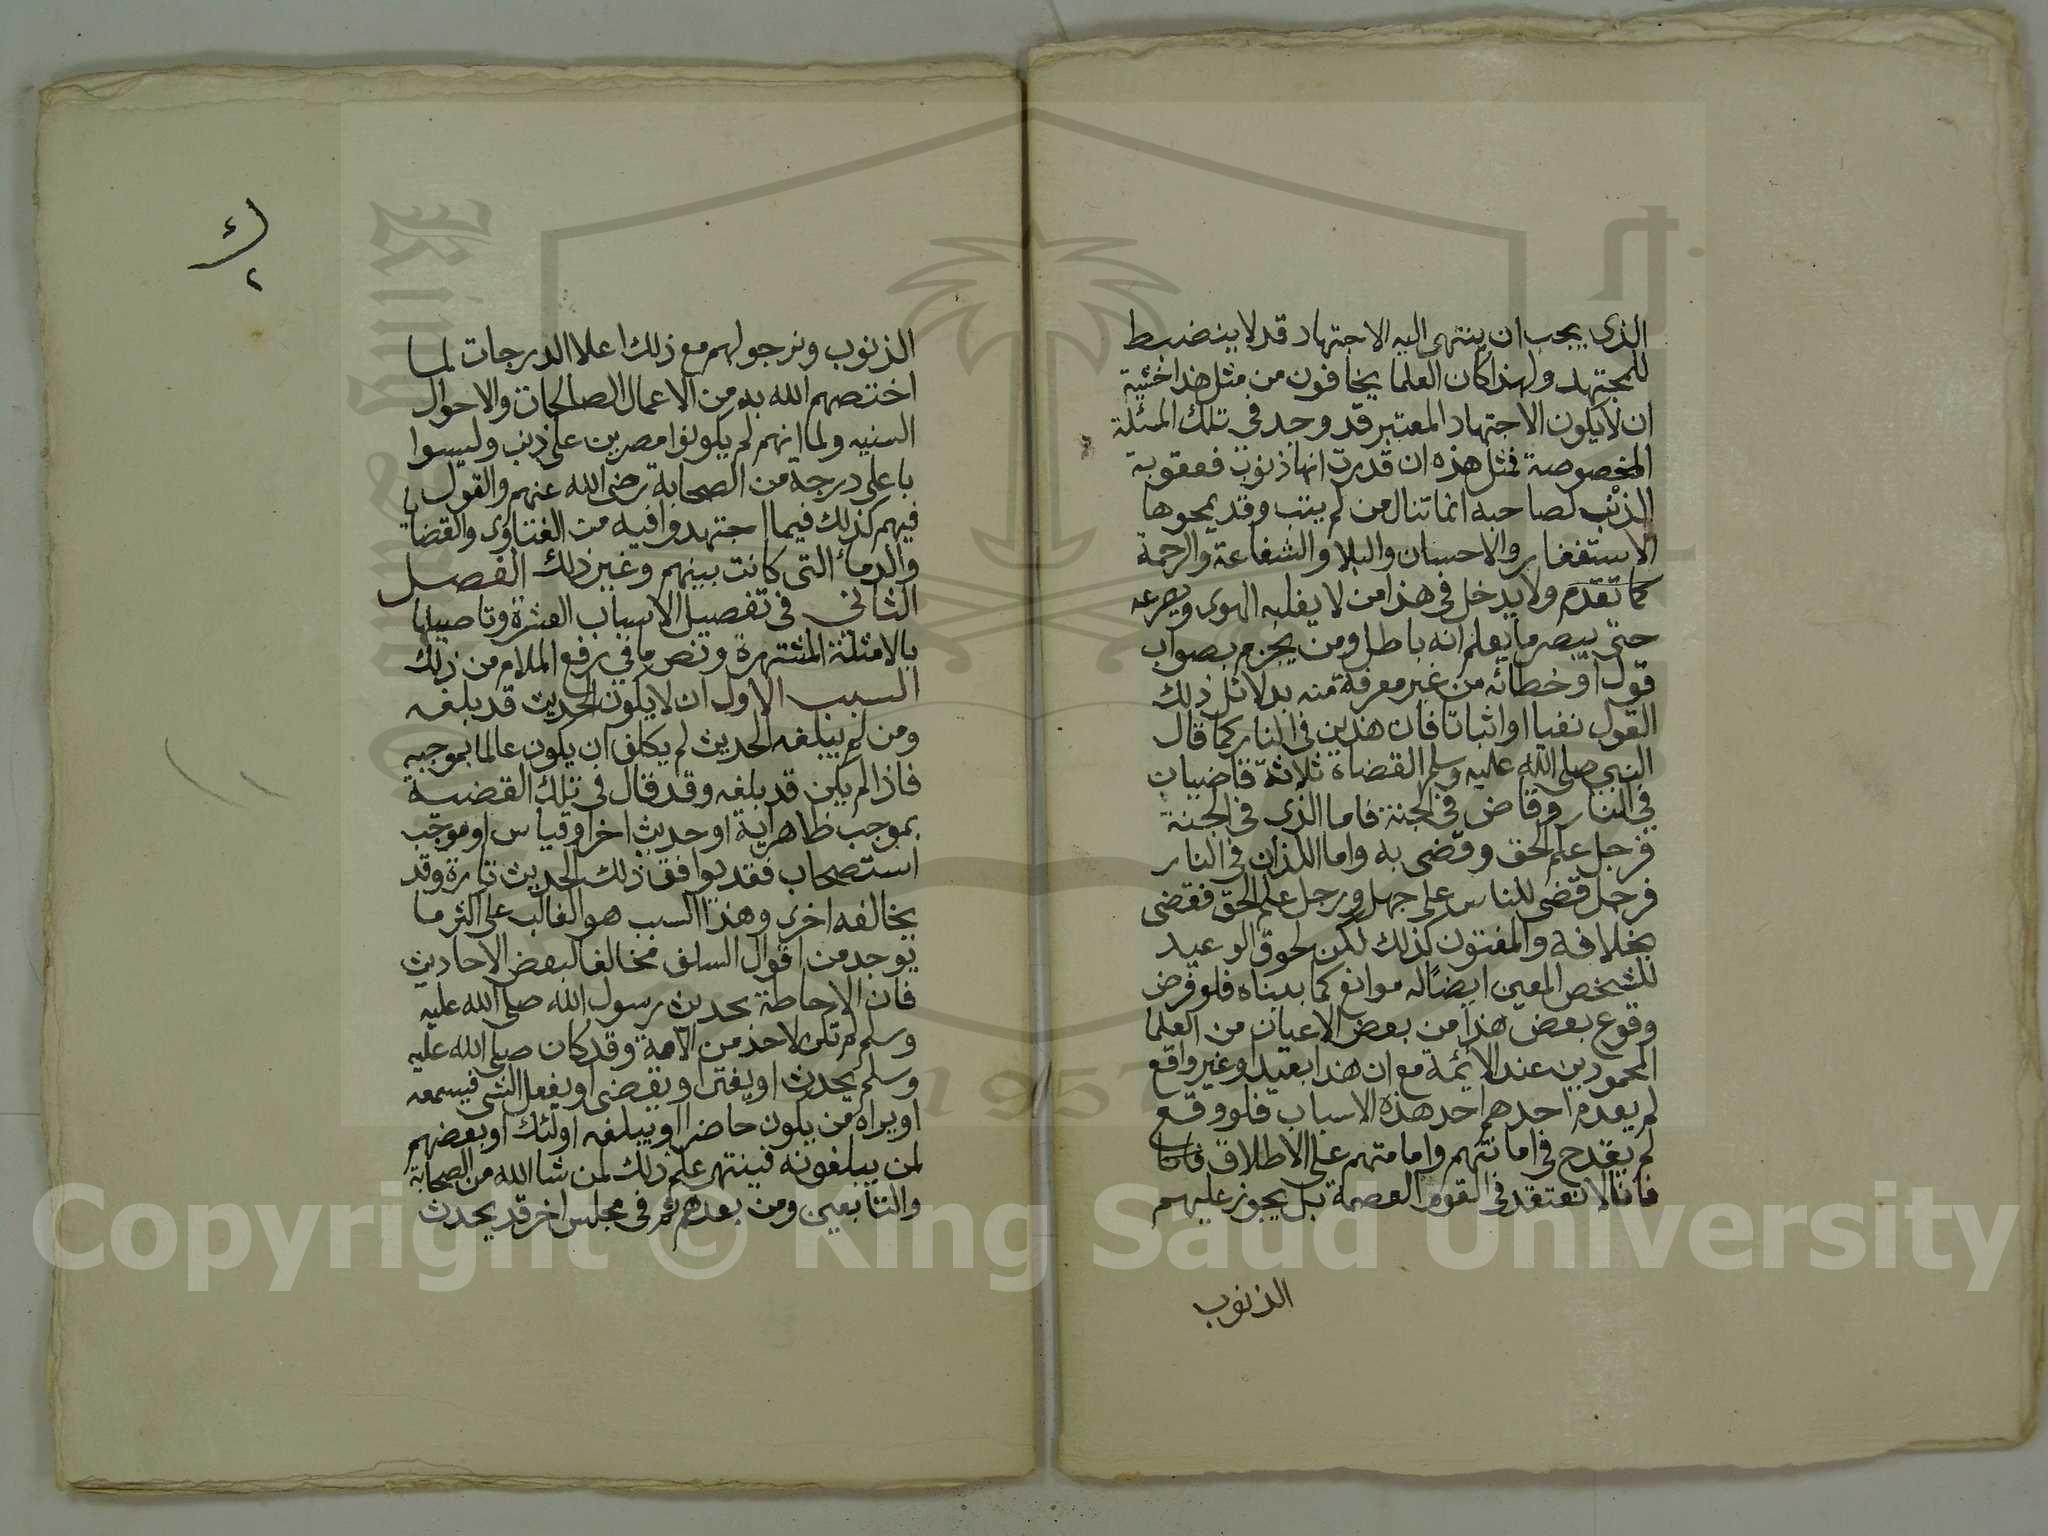 الذى يجب ان ينتهى اليه الاجتهاد قد لا ينضبط
للمجتهد ولهذا كان العلما يخافون من مثل هذا خشية
ان لا يكون الاجتهاد المعتبر قد وجد في تلك المسئلة
المخصوصة فمثل هذه ان قدرت انها ذنوب فعقوبة
الذنب لصاحبه انما تنال من لم يتب وقد يمحوها
الاستغفار والاحسان والبلا والشفاعة والرحمة
كما تقدم ولا يدخل في هذا من لا يغلبه الهوى ويصرعه
حتى يبصر ما يعلم انه باطل ومن يجزم بصواب
قول او خطائه من غير معرفة منه بدلائل ذلك
القول نفيا او اثباتا فان هذين في النار كما قال
النبي صلى الله عليه وسلم القضاة ثلاثة قاضيان
في النار وقاض في الجنة فاما الذى في الجنة
فرجل علم الحق وقضى به واما اللذان في النار
فرجل قضى للناس على جهل ورجل علم الحق فقضى
بخلافه والمفتون كذلك لكن لحوق الوعيد
للشخص المعين ايضًا له موانع كما بيناه فلو فرض
وقوع بعض هذا من بعض الاعيان من العلما
المحمودين عند الائمة مع ان هذا بعيد او غير واقع
لم يعدم احدهم احد هذه الاسباب فلو وقع
لم يقدح في امانتهم وامامتهم على الاطلاق فانا
فانا لا نعتقد في القوم العصمة بل يجوز عليهم
الذنوب
ك
٢
الذنوب ونرجو لهم مع ذلك اعلا الدرجات لما
اختصهم الله به من الاعمال الصالحات والاحوال
السنيه ولما انهم لم يكونوا مصرين على ذنب وليسوا
باعلى درجة من الصحابة رضى الله عنهم والقول
فيهم كذلك فيما اجتهدوا فيه من الفتاوى والقضايا
والدماء التى كانت بينهم وغير ذلك الفصل
الثانى في تفصيل الاسباب العشرة وتاصيلها
بالامثلة المشتهرة ونص ما في رفع الملام من ذلك
السبب الاول ان لا يكون الحديث قد بلغه
ومن لم يبلغه الحديث لم يكلف ان يكون عالما بموجبه
فاذا لم يكن قد بلغه وقد قال في تلك القضية
بموجب ظاهر اية او حديث اخر او قياس او موجب
استصحاب فقد يوافق ذلك الحديث تارة وقد
يخالفه اخرى وهذا السبب هو الغالب على اكثر ما
يوجد من اقوال السلف مخالفا لبعض الاحاديث
فان الاحاطة بحديث رسول الله صلى الله عليه
وسلم لم تكن لاحد من الامة وقد كان صلى الله عليه
وسلم يحدث او يفتى او يقضى او يفعل الشى فيسمعه
او يراه من يكون حاضرا او يبلغه اولئك او بعضهم
لمن يبلغونه فينتهى علم ذلك لمن شا الله من الصحابة
والتابعين ومن بعدهم ثم في مجلس اخر قد يحدث
King
1957
Copyright © King Saud University